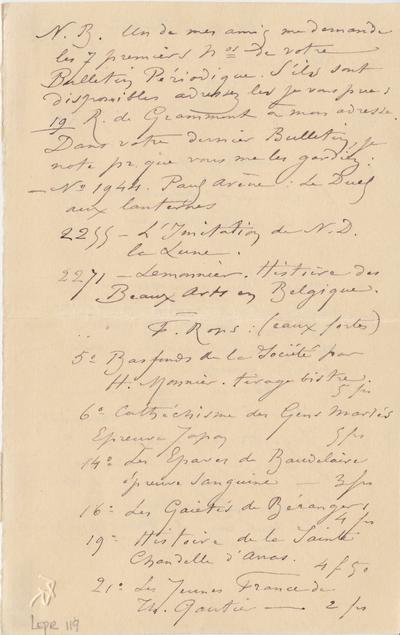 N.B. Un de mes amis me demande
les 7 premiers Nos de votre
Bulletin Périodique. S'ils sont
disponibles adressez les je vous prie :
19 R. de Grammont à mon adresse.
Dans votre dernier Bulletin, je
note pr. que vous me les gardiez :
— No 1944. Paul Arène : Le Duel
aux lanternes
2255 – L'Imitation de N.D.
la Lune.
2271 – Lemonnier. Histoire des
Beaux Arts en Belgique.
F. Rops : (eaux fortes)
5o Bas fonds de la Société par
H. Monnier. tirage bistre.
5 frs
6o Cathéchisme des Gens Mariés
Epreuve Japon 5 frs
14o Les Epaves de Baudelaire
épreuve sanguine — 3 frs
16o Les Gaietés de Béranger
4 frs
19o Histoire de la Sainte
Chandelle d'Arras. 4 f 50
21o Les Jeunes France de
Th. Gautier — 2 frs
LEpR 119